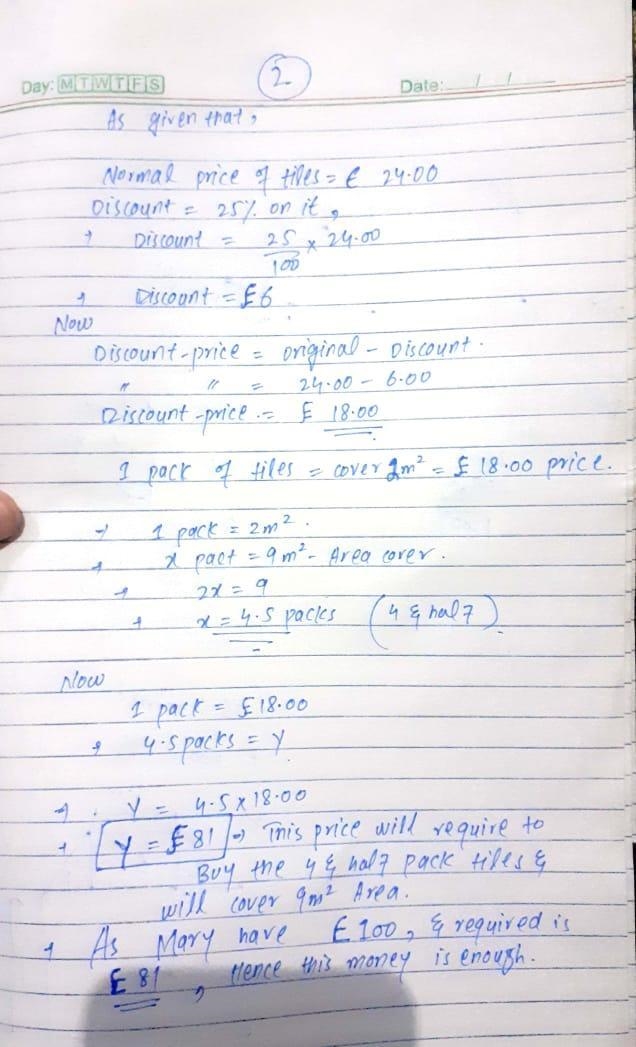 2
Day: M T W T F S Date: / /
As given that,
Normal price of tiles = € 24.00
Discount = 25% on it,
Discount = 25/100 × 24.00
Discount = £6
Now
Discount-price = original - Discount.
" " = 24.00 - 6.00
Discount-price = £ 18.00
1 pack of tiles = cover 2m² = £ 18.00 price.
→ 1 pack = 2m².
→ x pact = 9m² - Area cover.
→ 2x = 9
→ x = 4.5 packs (4 & half)
Now
1 pack = £18.00
→ 4.5 packs = Y
→ Y = 4.5 x 18.00
→ Y = £ 81 → This price will require to
Buy the 4 & half pack tiles &
will cover 9m² Area.
→ As Mary have £100, & required is
£ 81, Hence this money is enough.